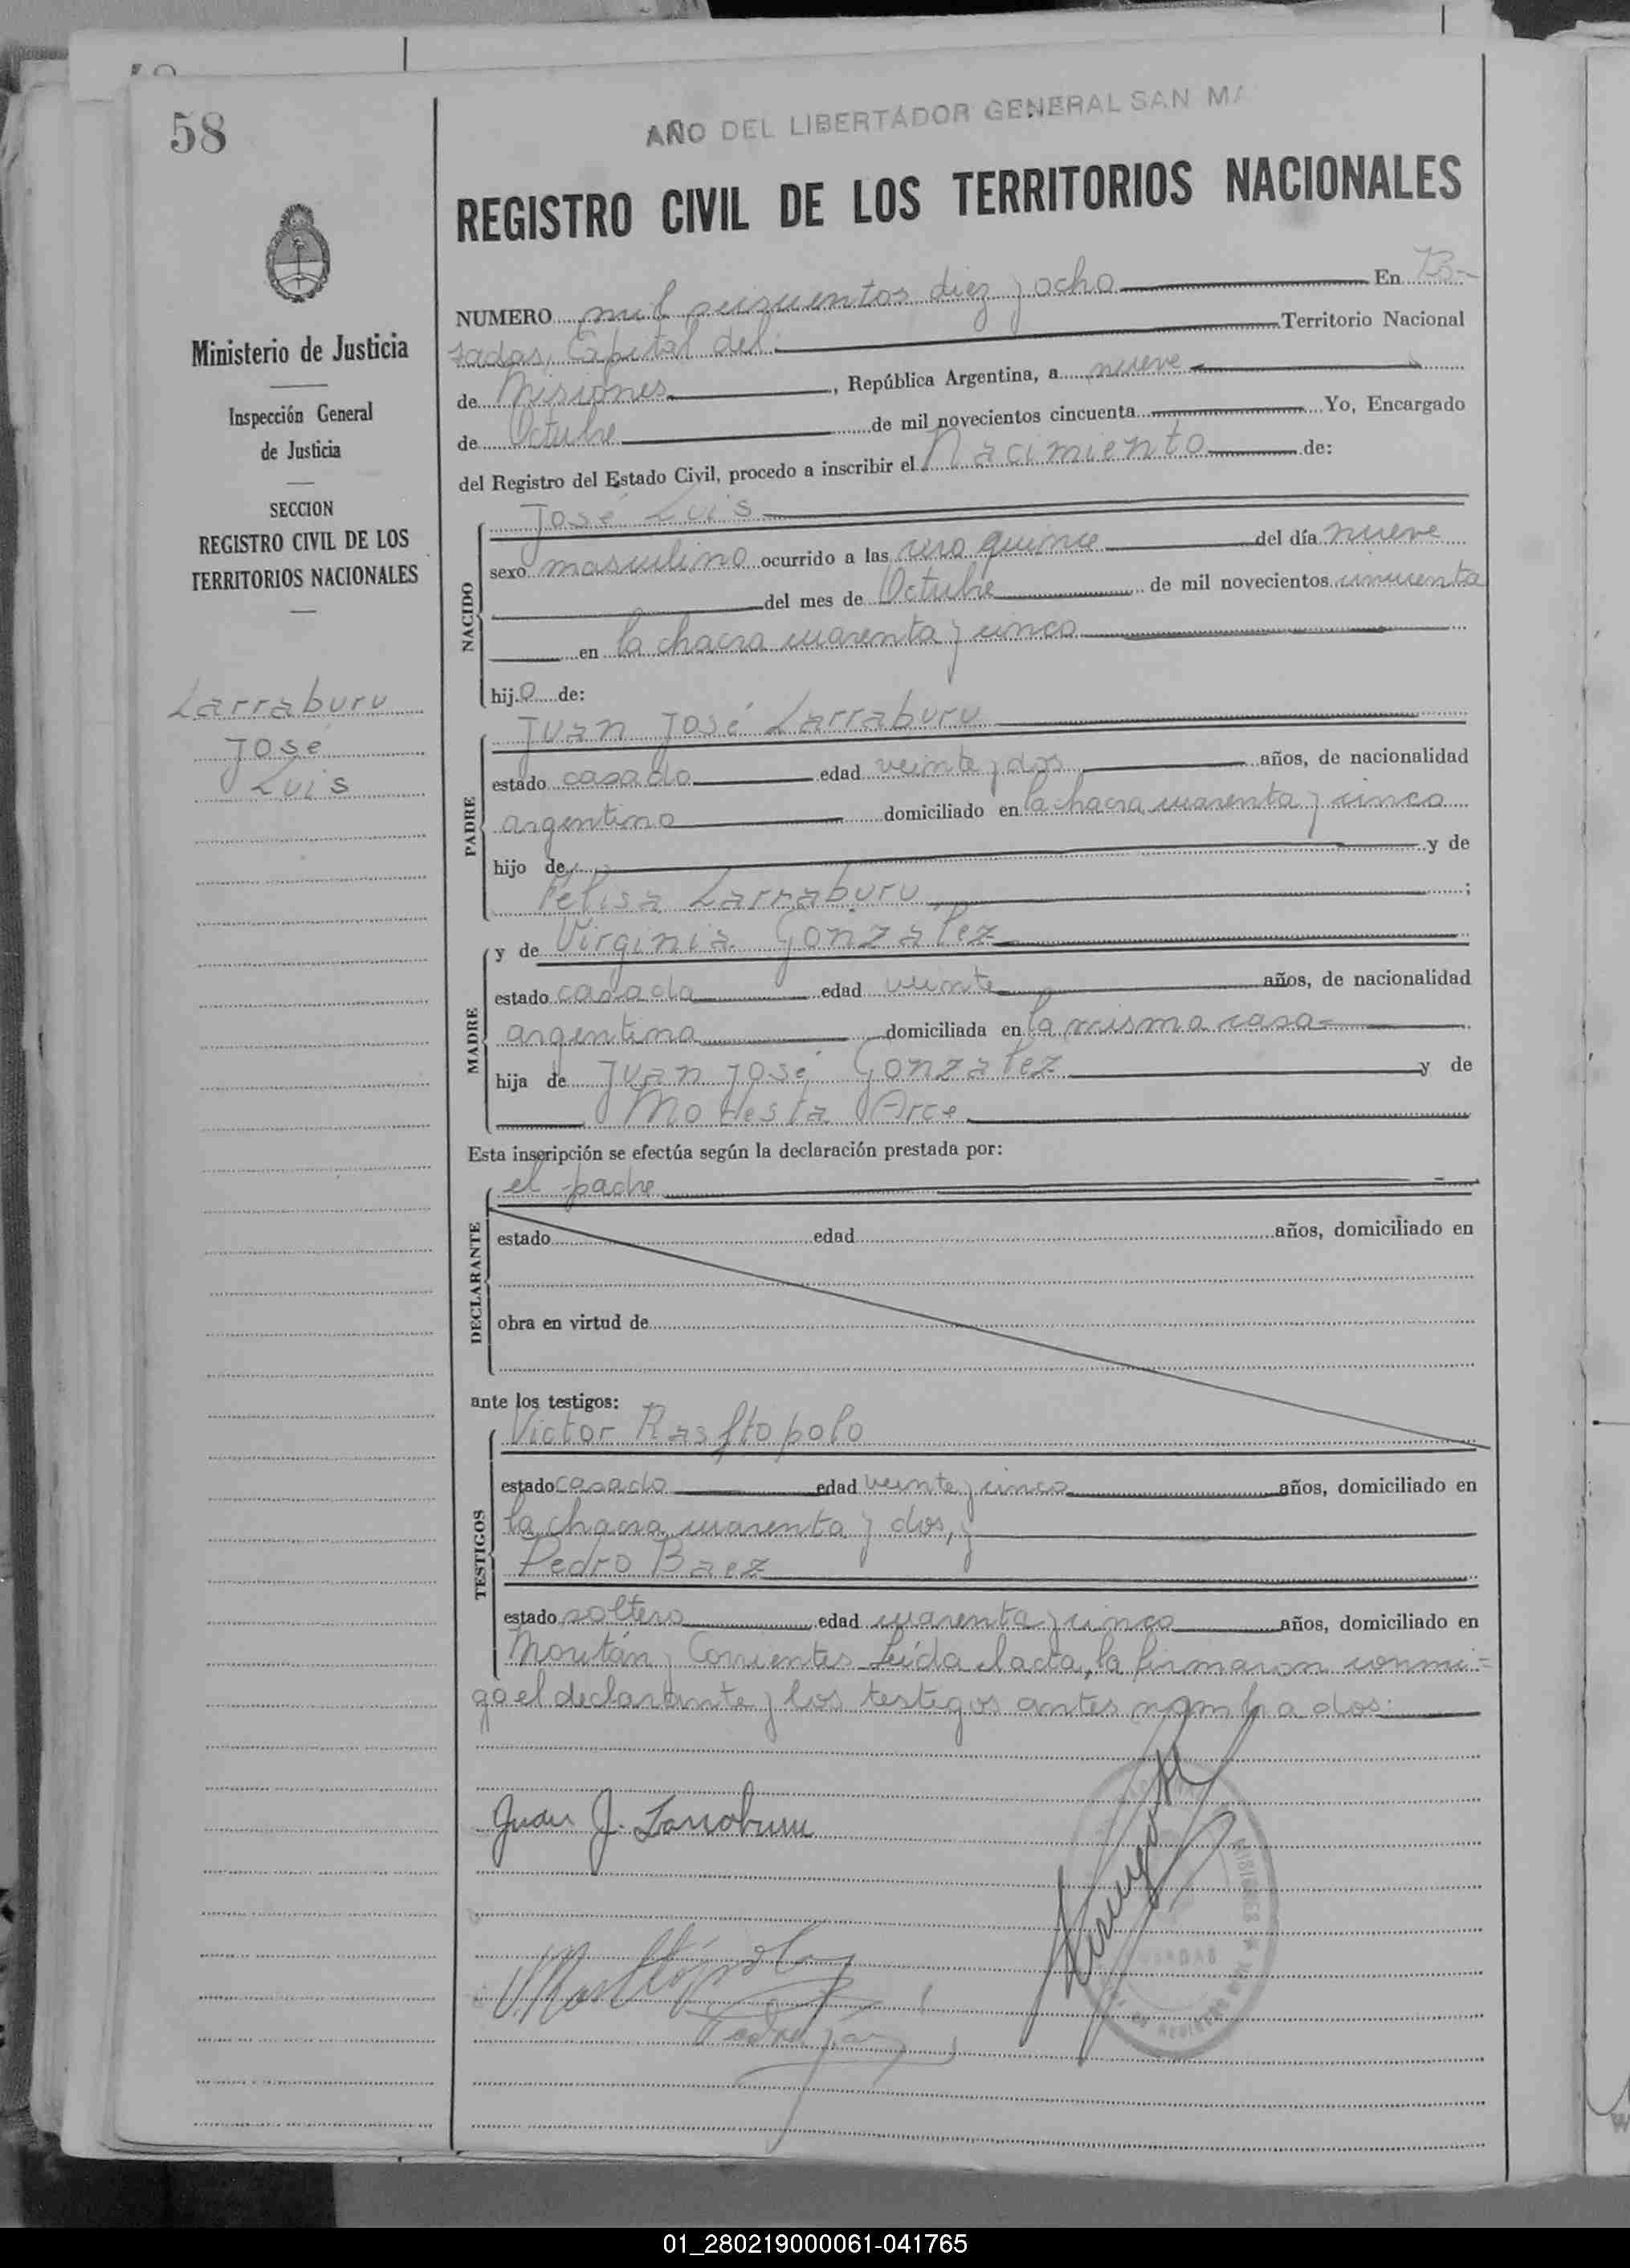 58
AÑO DEL LIBERTADOR GENERAL SAN MA
REGISTRO CIVIL DE LOS TERRITORIOS NACIONALES
Ministerio de Justicia
Inspección General
de Justicia
SECCION
REGISTRO CIVIL DE LOS
TERRITORIOS NACIONALES
Larraburu
José
Luis
NUMERO mil seiscientos diez y ocho En
sadas, Capital del Territorio Nacional
de Misiones, República Argentina, a nueve
de Octubre de mil novecientos cincuenta Yo, Encargado
del Registro del Estado Civil, procedo a inscribir el Nacimiento de:
NACIDO
José Luis
sexo masculino ocurrido a las cero quince del día nueve
del mes de Octubre de mil novecientos cincuenta
en la chacra cuarenta y cinco
hijo de:
PADRE
Juan José Larraburu
estado casado edad veinte y dos años, de nacionalidad
argentino domiciliado en la chacra cuarenta y cinco
hijo de y de
Felisa Larraburu;
MADRE
y de Virginia González
estado casada edad veinte años, de nacionalidad
argentina domiciliada en la misma casa
hija de Juan José González y de
Modesta Arce
Esta inscripción se efectúa según la declaración prestada por:
DECLARANTE
el padre
estado edad años, domiciliado en
obra en virtud de
ante los testigos:
TESTIGOS
Victor Rasftopolo
estado casado edad veinte y cinco años, domiciliado en
la chacra cuarenta y dos, y
Pedro Baez
estado soltero edad cuarenta y cinco años, domiciliado en
Corrientes Leída el acta, la firmaron conmi-
go el declarante y los testigos antes nombrados.
Juan J. Larraburu
01_280219000061-041765